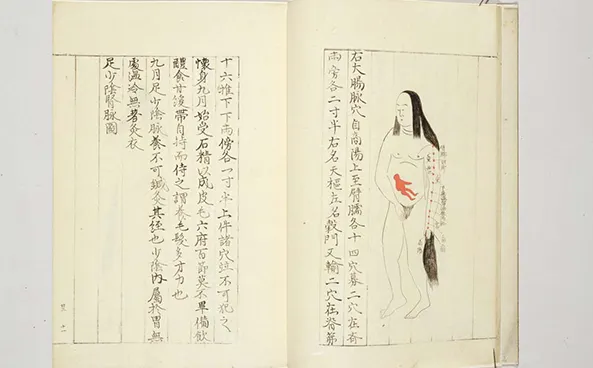 右大腸脉穴自商陽上至臂臑各十四穴募二穴在斉
両傍各二寸半右名天樞左名穀門又輸二穴在脊第
十六椎下下両傍各一寸半上件諸穴並不可犯之
懐身九月始受石精以成皮毛六府百節莫不畢備飲
醴食甘緩帯自持而侍之謂養毛髪多才力也
九月足少陰脉養不可鍼灸其経也少陰内属於胃無
處温冷無著炙衣
足少陰腎脉圖